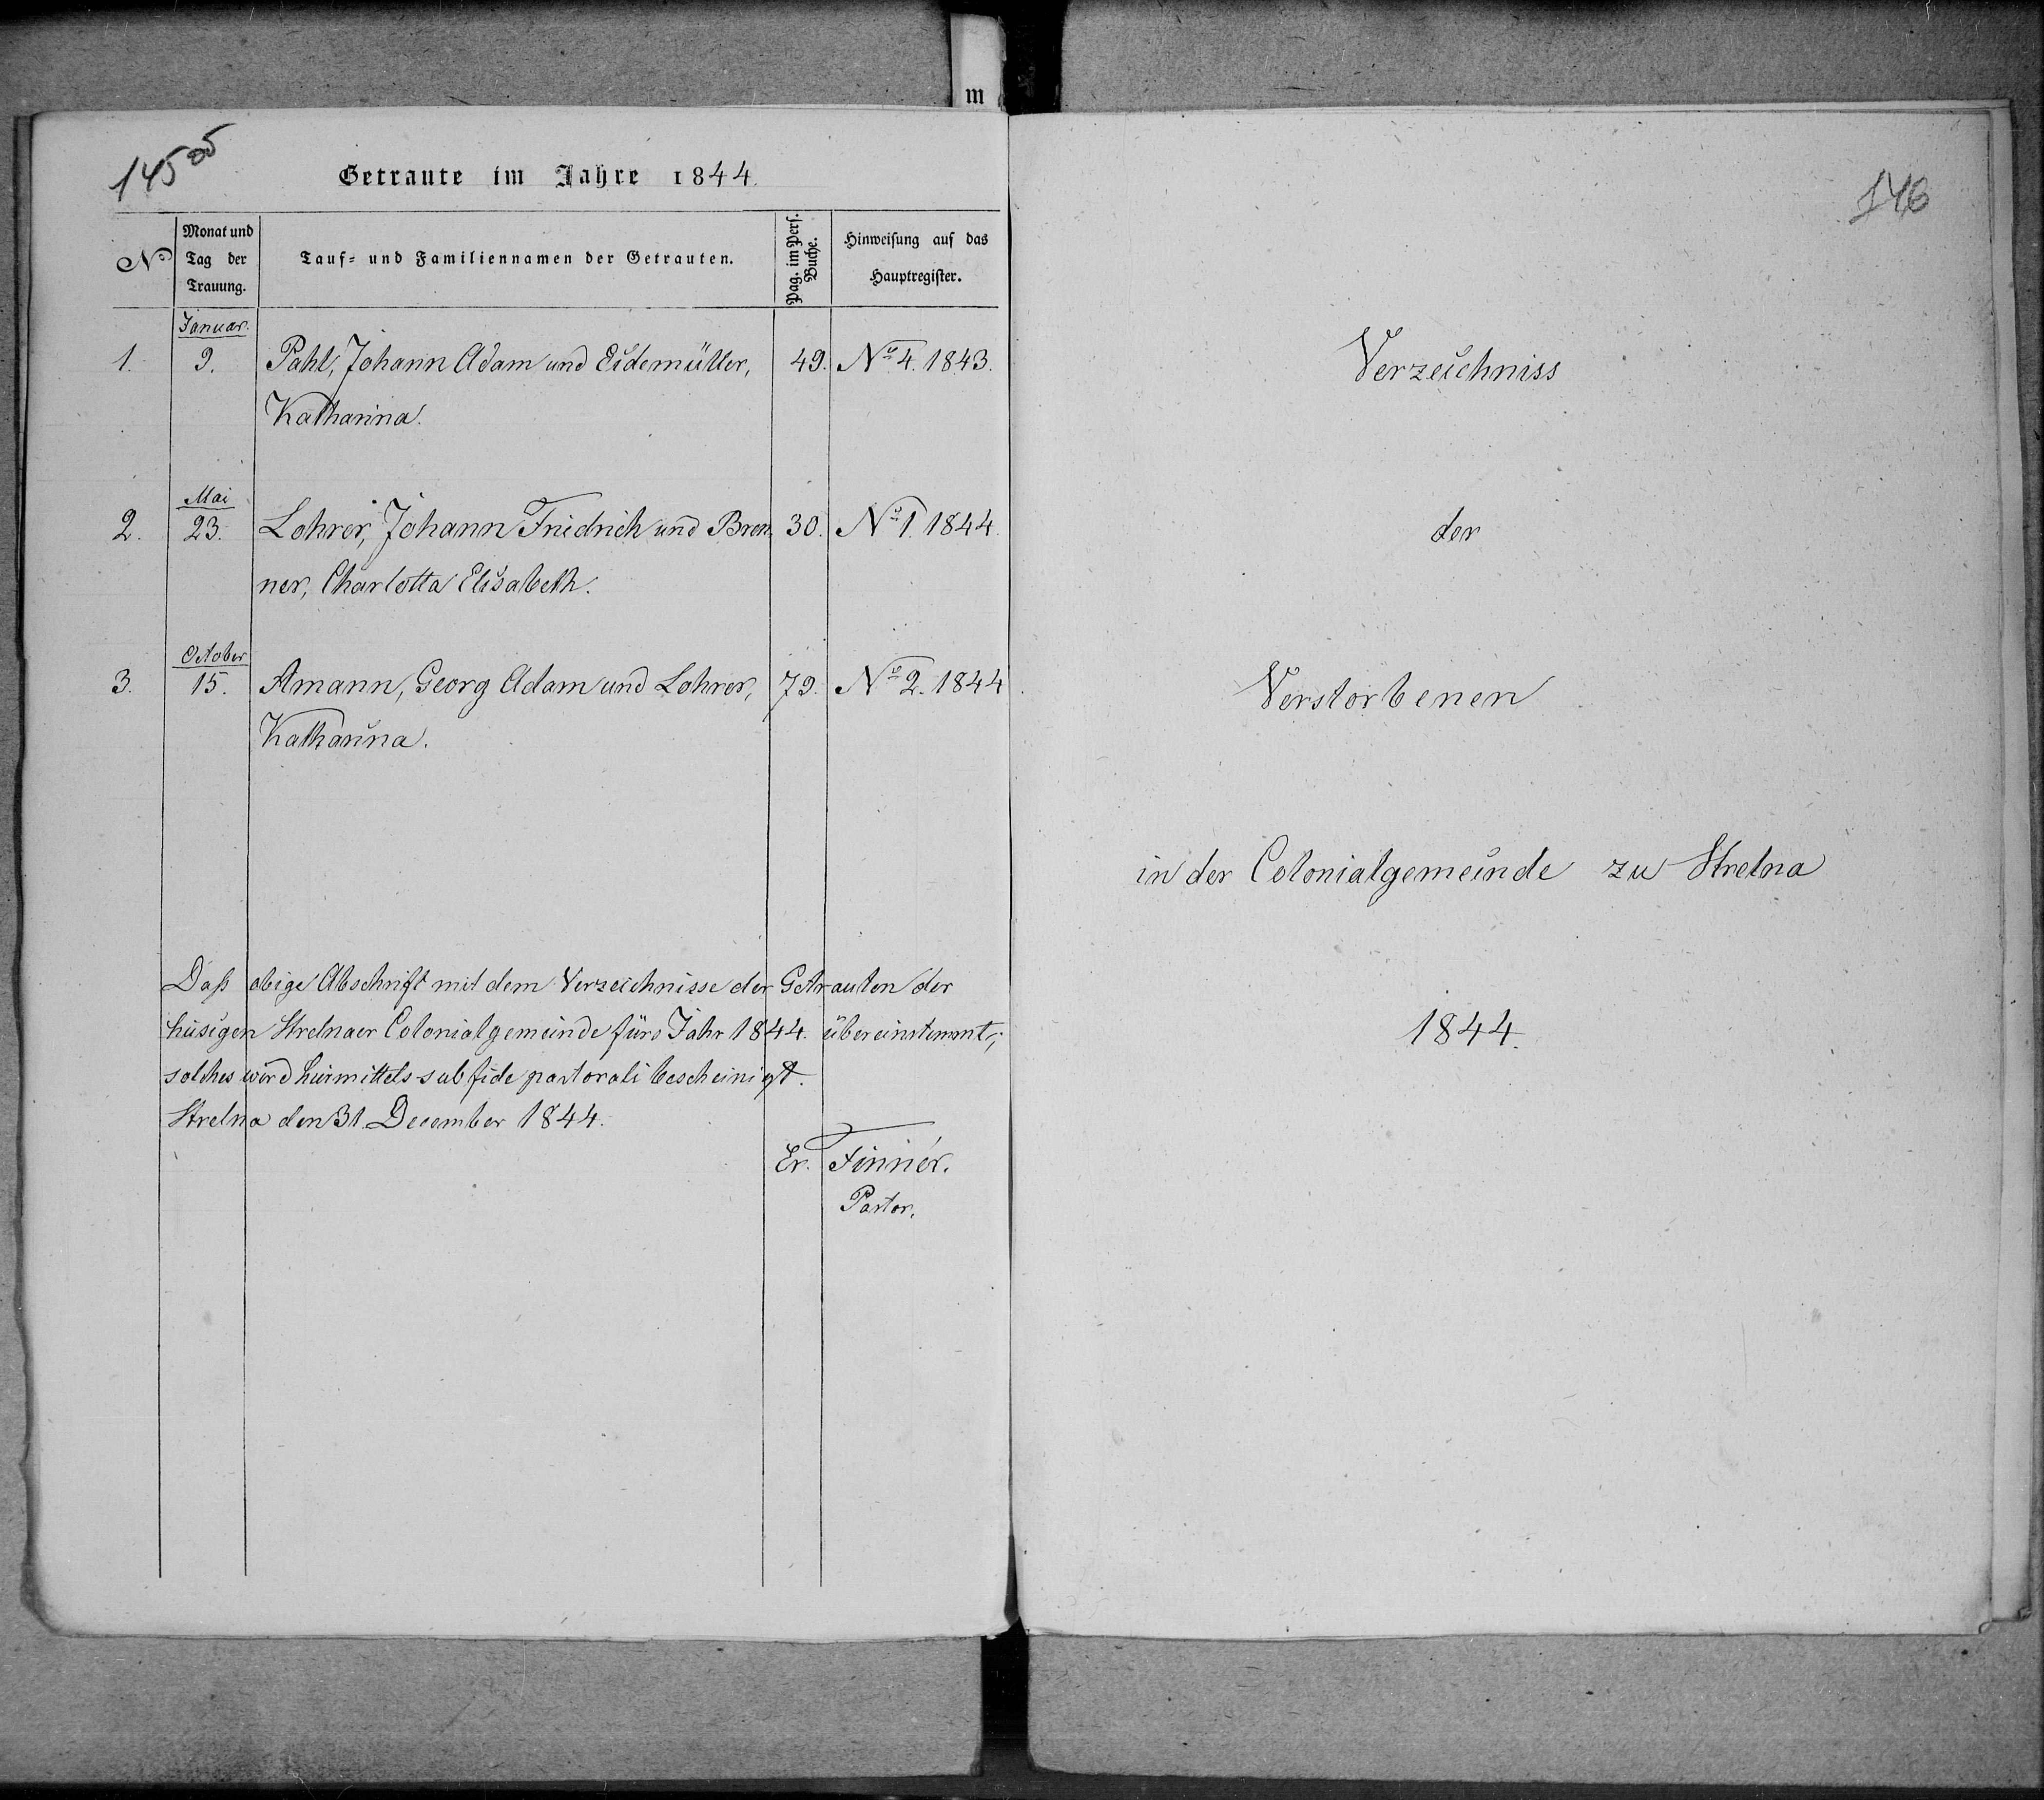 m
145 об
Getraute im Jahre 1844.
No
Monat und
Tag der
Trauung.
Tauf- und Familiennamen der Getrauten.
Pag. im Pers.
Buche.
Hinweisung auf das
Hauptregister.
Januar.
1. 9. Pahl, Johann Adam und Eidemüller, 49. No 4. 1843.
Katharina.
Mai
2. 23. Lohrer, Johann Friedrich und Bren- 30. No 1. 1844.
ner, Charlotta Elisabeth.
October
3. 15. Amann, Georg Adam und Lohrer, 79. No 2. 1844.
Katharina.
Daß obige Abschrift mit dem Verzeichnisse der Getrauten der
hiesigen Strelnaer Colonialgemeinde fürs Jahr 1844. übereinstimmt;
solches wird hiermittels sub fide pastorali bescheinigt.
Strelna den 31 December 1844.
Er. Finnér.
Pastor.
146
Verzeichniss
der
Verstorbenen
in der Colonialgemeinde zu Strelna
1844.